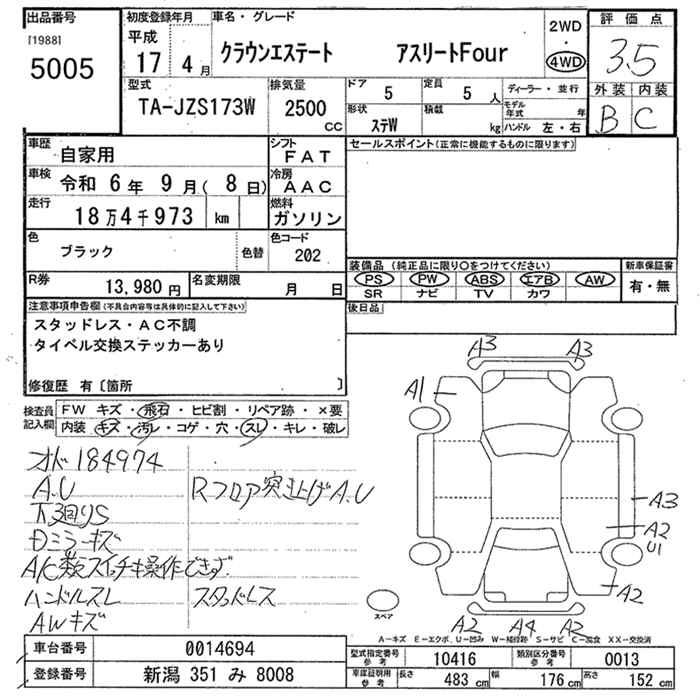 出品番号
[1988]
5005
初度登録年月
平成
17 4月
車名・グレード
クラウンエステート アスリートFour
2WD
・
4WD
評価点
3.5
外装 内装
B C
型式
TA-JZS173W
排気量
2500
CC
ドア
5
定員
5 人
形状
ステW
積載
kg
ディーラー・並行
モデル年式 年
ハンドル 左・右
車歴
自家用
シフト
FAT
セールスポイント(正常に機能するものに限ります)
車検
令和 6年 9月( 8日)
冷房
AAC
走行
18万4千973 km
燃料
ガソリン
色
ブラック
色替
色コード
202
R券
13,980円
名変期限
月 日
装備品 (純正品に限り○をつけてください)
新車保証書
PS PW ABS エアB AW
SR ナビ TV カワ
有・無
後日品
注意事項申告欄(不具合内容等は具体的に記入して下さい)
スタッドレス・AC不調
タイベル交換ステッカーあり
修復歴 有〔箇所 〕
検査員記入欄
FW キズ・飛石・ヒビ割・リペア跡・×要
内装 キズ・汚レ・コゲ・穴・スレ・キレ・破レ
オド184974
A.U
下廻りS
Dミラーキズ
A/C類スイッチキ操作できず
ハンドルスレ
AWキズ
Rフロア突き上げA.U
スタッドレス
A3 A3
A1
A3
A2
U1
A2
A2 A4 A2
スペア
A-キズ E-エクボ、U-凹み W-補修跡 S-サビ C-腐食 XX-交換済
車台番号
0014694
登録番号
新潟 351 み 8008
型式指定番号
参考
10416
類別区分番号
参考
0013
車庫証明用
参考
長さ
483 cm
幅
176 cm
高さ
152 cm